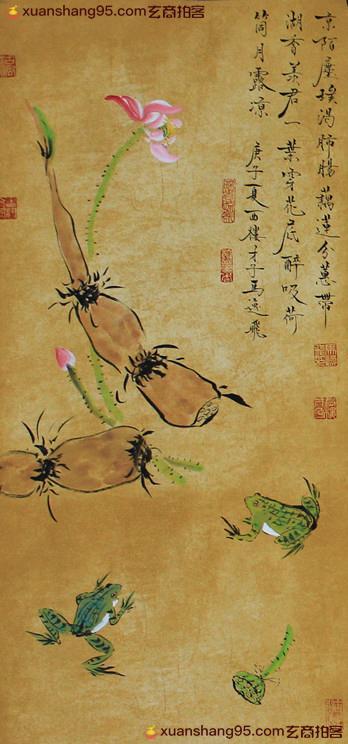 xuanshang95.com玄商拍客
京陌塵揉渴肺腸藕蓮分蕙帶
湖香羨君一葉穿花底醉吸荷
筒月露凉
庚子夏西樓才子馬逸飛
xuanshang95.com玄商拍客